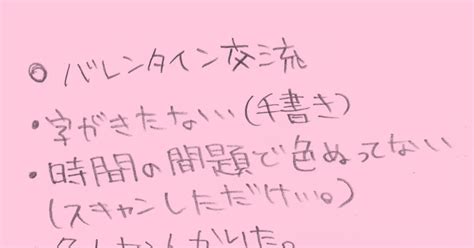 ◎ バレンタイン交流
・字がきたない(手書き)
・時間の問題で色ぬってない
(スキャンしただけい。)